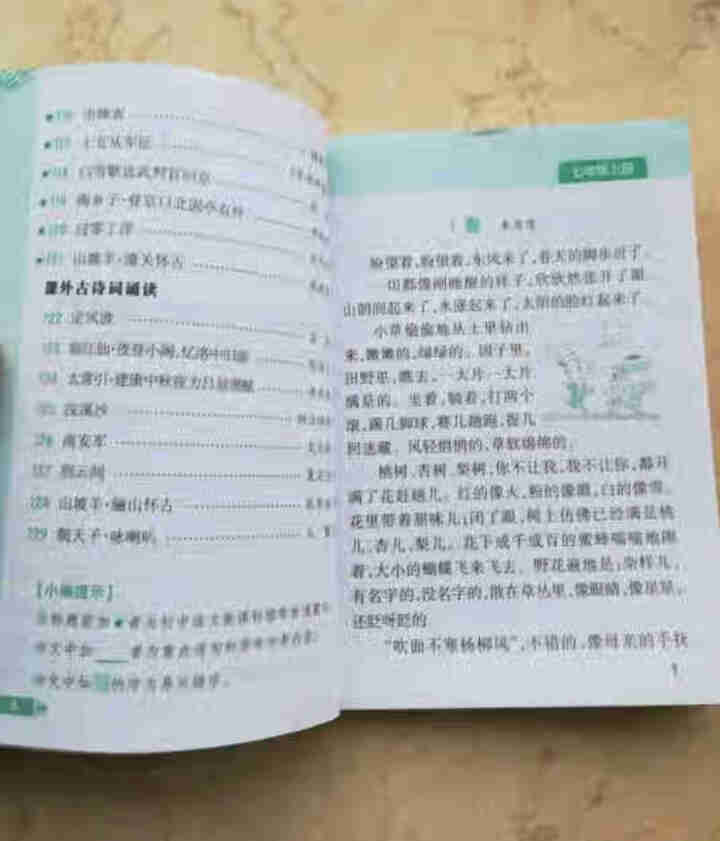 116 出师表
117 十五从军征
118 白雪歌送武判官归京
119 南乡子·登京口北固亭有怀
120 过零丁洋
121 山坡羊·潼关怀古
课外古诗词诵读
122 定风波
123 临江仙·夜登小阁,忆洛中旧游
124 太常引·建康中秋夜为吕叔潜赋
125 浣溪沙
126 南安军
127 别云间
128 山坡羊·骊山怀古
129 朝天子·咏喇叭
【小编提示】
七年级上册
1 春 朱自清
盼望着,盼望着,东风来了,春天的脚步近了。
切都像刚睡醒的样子,欣欣然张开了眼
山朗润起来了,水涨起来了,太阳的脸红起来了
小草偷偷地从土里钻出
来,嫩嫩的,绿绿的。园子里,
田野里,瞧去,一大片一大片
满是的。坐着,躺着,打两个
滚,踢几脚球,赛几趟跑,捉几
回迷藏。风轻悄悄的,草软绵绵的。
桃树、杏树、梨树,你不让我,我不让你,都开
满了花赶趟儿。红的像火,粉的像霞,白的像雪。
花里带着甜味儿;闭了眼,树上仿佛已经满是桃
儿、杏儿、梨儿。花下成千成百的蜜蜂嗡嗡地闹
着,大小的蝴蝶飞来飞去。野花遍地是:杂样儿,
有名字的,没名字的,散在草丛里,像眼睛,像星星,
还眨呀眨的
“吹面不寒杨柳风”,不错的,像母亲的手抚
1